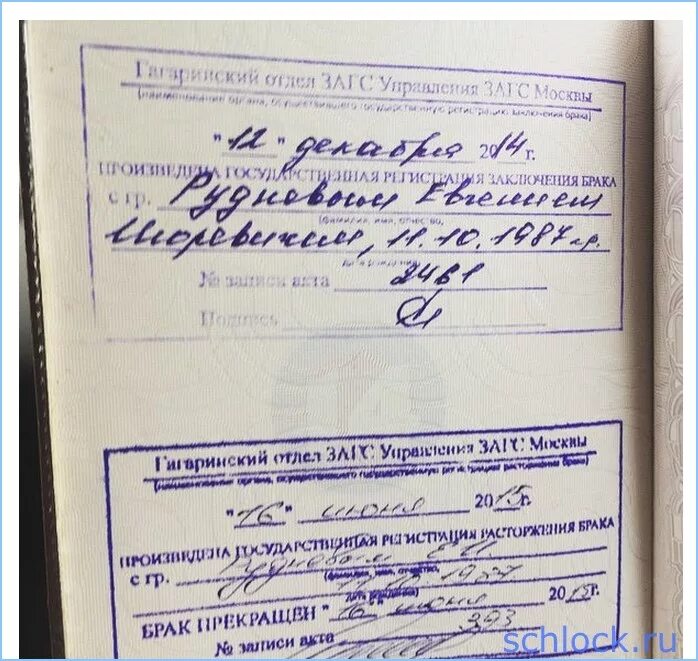 Гагаринский отдел ЗАГС Управления ЗАГС Москвы
(наименование органа, осуществившего государственную регистрацию заключения брака)
"12" декабря 2014 г.
ПРОИЗВЕДЕНА ГОСУДАРСТВЕННАЯ РЕГИСТРАЦИЯ ЗАКЛЮЧЕНИЯ БРАКА
с гр. Рудновым Евгением
(фамилия, имя, отчество,
Игоревичем, 11.10.1987 г.р.
дата рождения)
№ записи акта 2461
Подпись
Гагаринский отдел ЗАГС Управления ЗАГС Москвы
(наименование органа, осуществившего государственную регистрацию расторжения брака)
"16" июня 2015 г.
ПРОИЗВЕДЕНА ГОСУДАРСТВЕННАЯ РЕГИСТРАЦИЯ РАСТОРЖЕНИЯ БРАКА
с гр. Рудновым Е.И.
(фамилия, имя, отчество,
1987
дата рождения)
БРАК ПРЕКРАЩЕН "16" июня 2015 г.
№ записи акта 393
schlock.ru